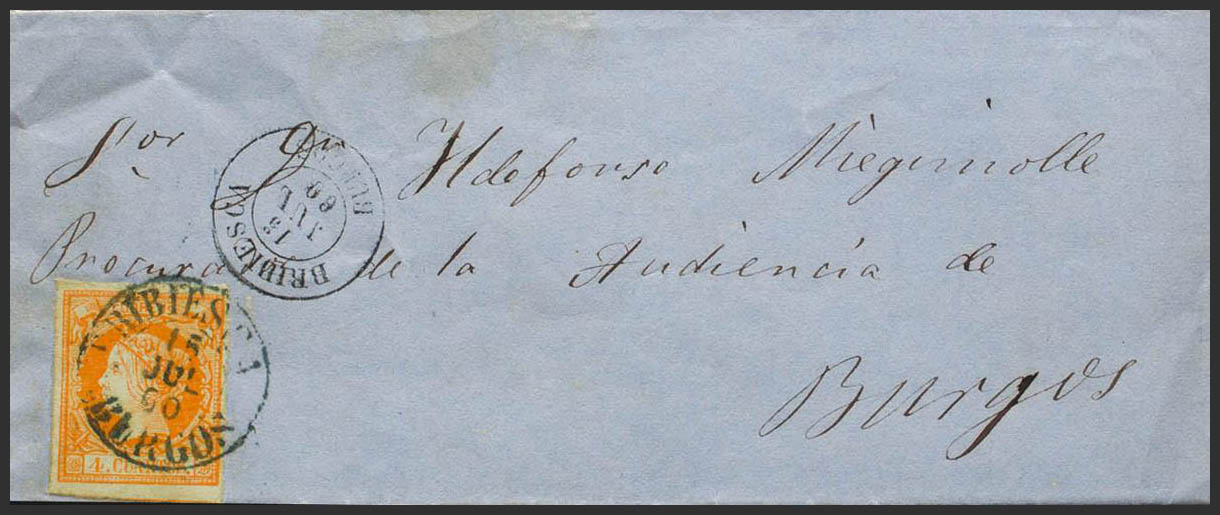 Sor Dn Ildefonso Miegimolle
Procurador de la Audiencia de
Burgos
BRIBIESCA
15
JUL
60
BURGOS
BRIBIESCA
15
JUL
60
BURGOS
4. CUARTOS.